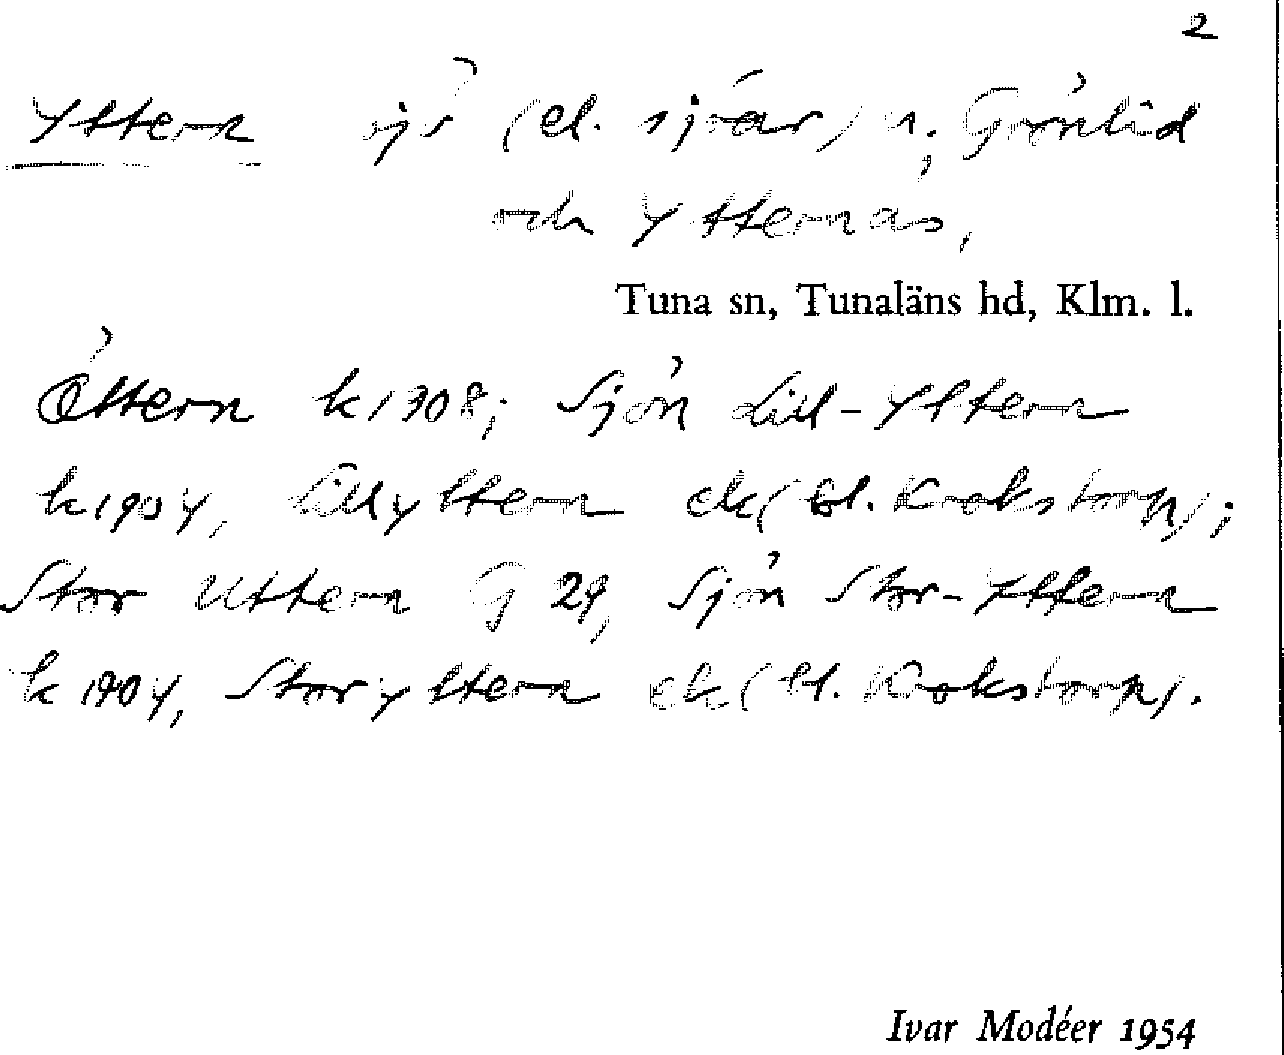 2
Yttern sjö (el. sjöar) n. Grönlid
och Ytternäs,
Tuna sn, Tunaläns hd, Klm. l.
Öttern k 1708; Sjön Lill-Yttern
k 1904, Lillyttern ek (bl. Krokstorp);
Stor Uttern G 29, Sjön Stor-Yttern
k 1904, Storyttern ek (bl. Krokstorp).
Ivar Modéer 1954